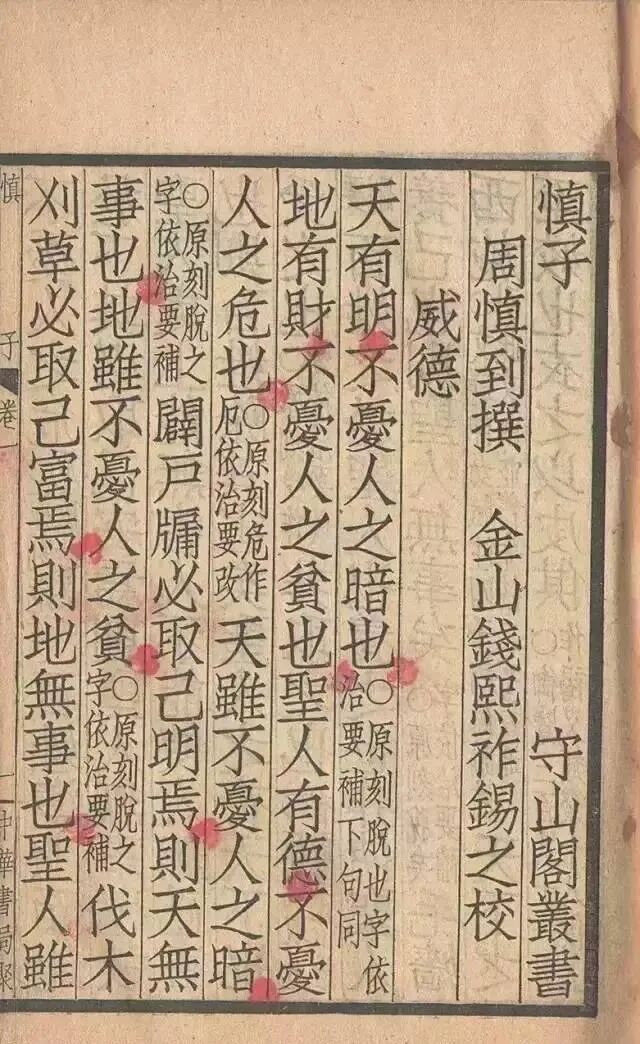 慎子　守山閣叢書
周慎到撰　金山錢熙祚錫之校
威德
天有明不憂人之暗也○原刻脫也字依治要補下句同
地有財不憂人之貧也聖人有德不憂
人之危也○原刻危作厄依治要改天雖不憂人之暗
○原刻脫之字依治要補闢戶牖必取己明焉則天無
事也地雖不憂人之貧○原刻脫之字依治要補伐木
刈草必取己富焉則地無事也聖人雖
慎子 卷 一 中華書局聚